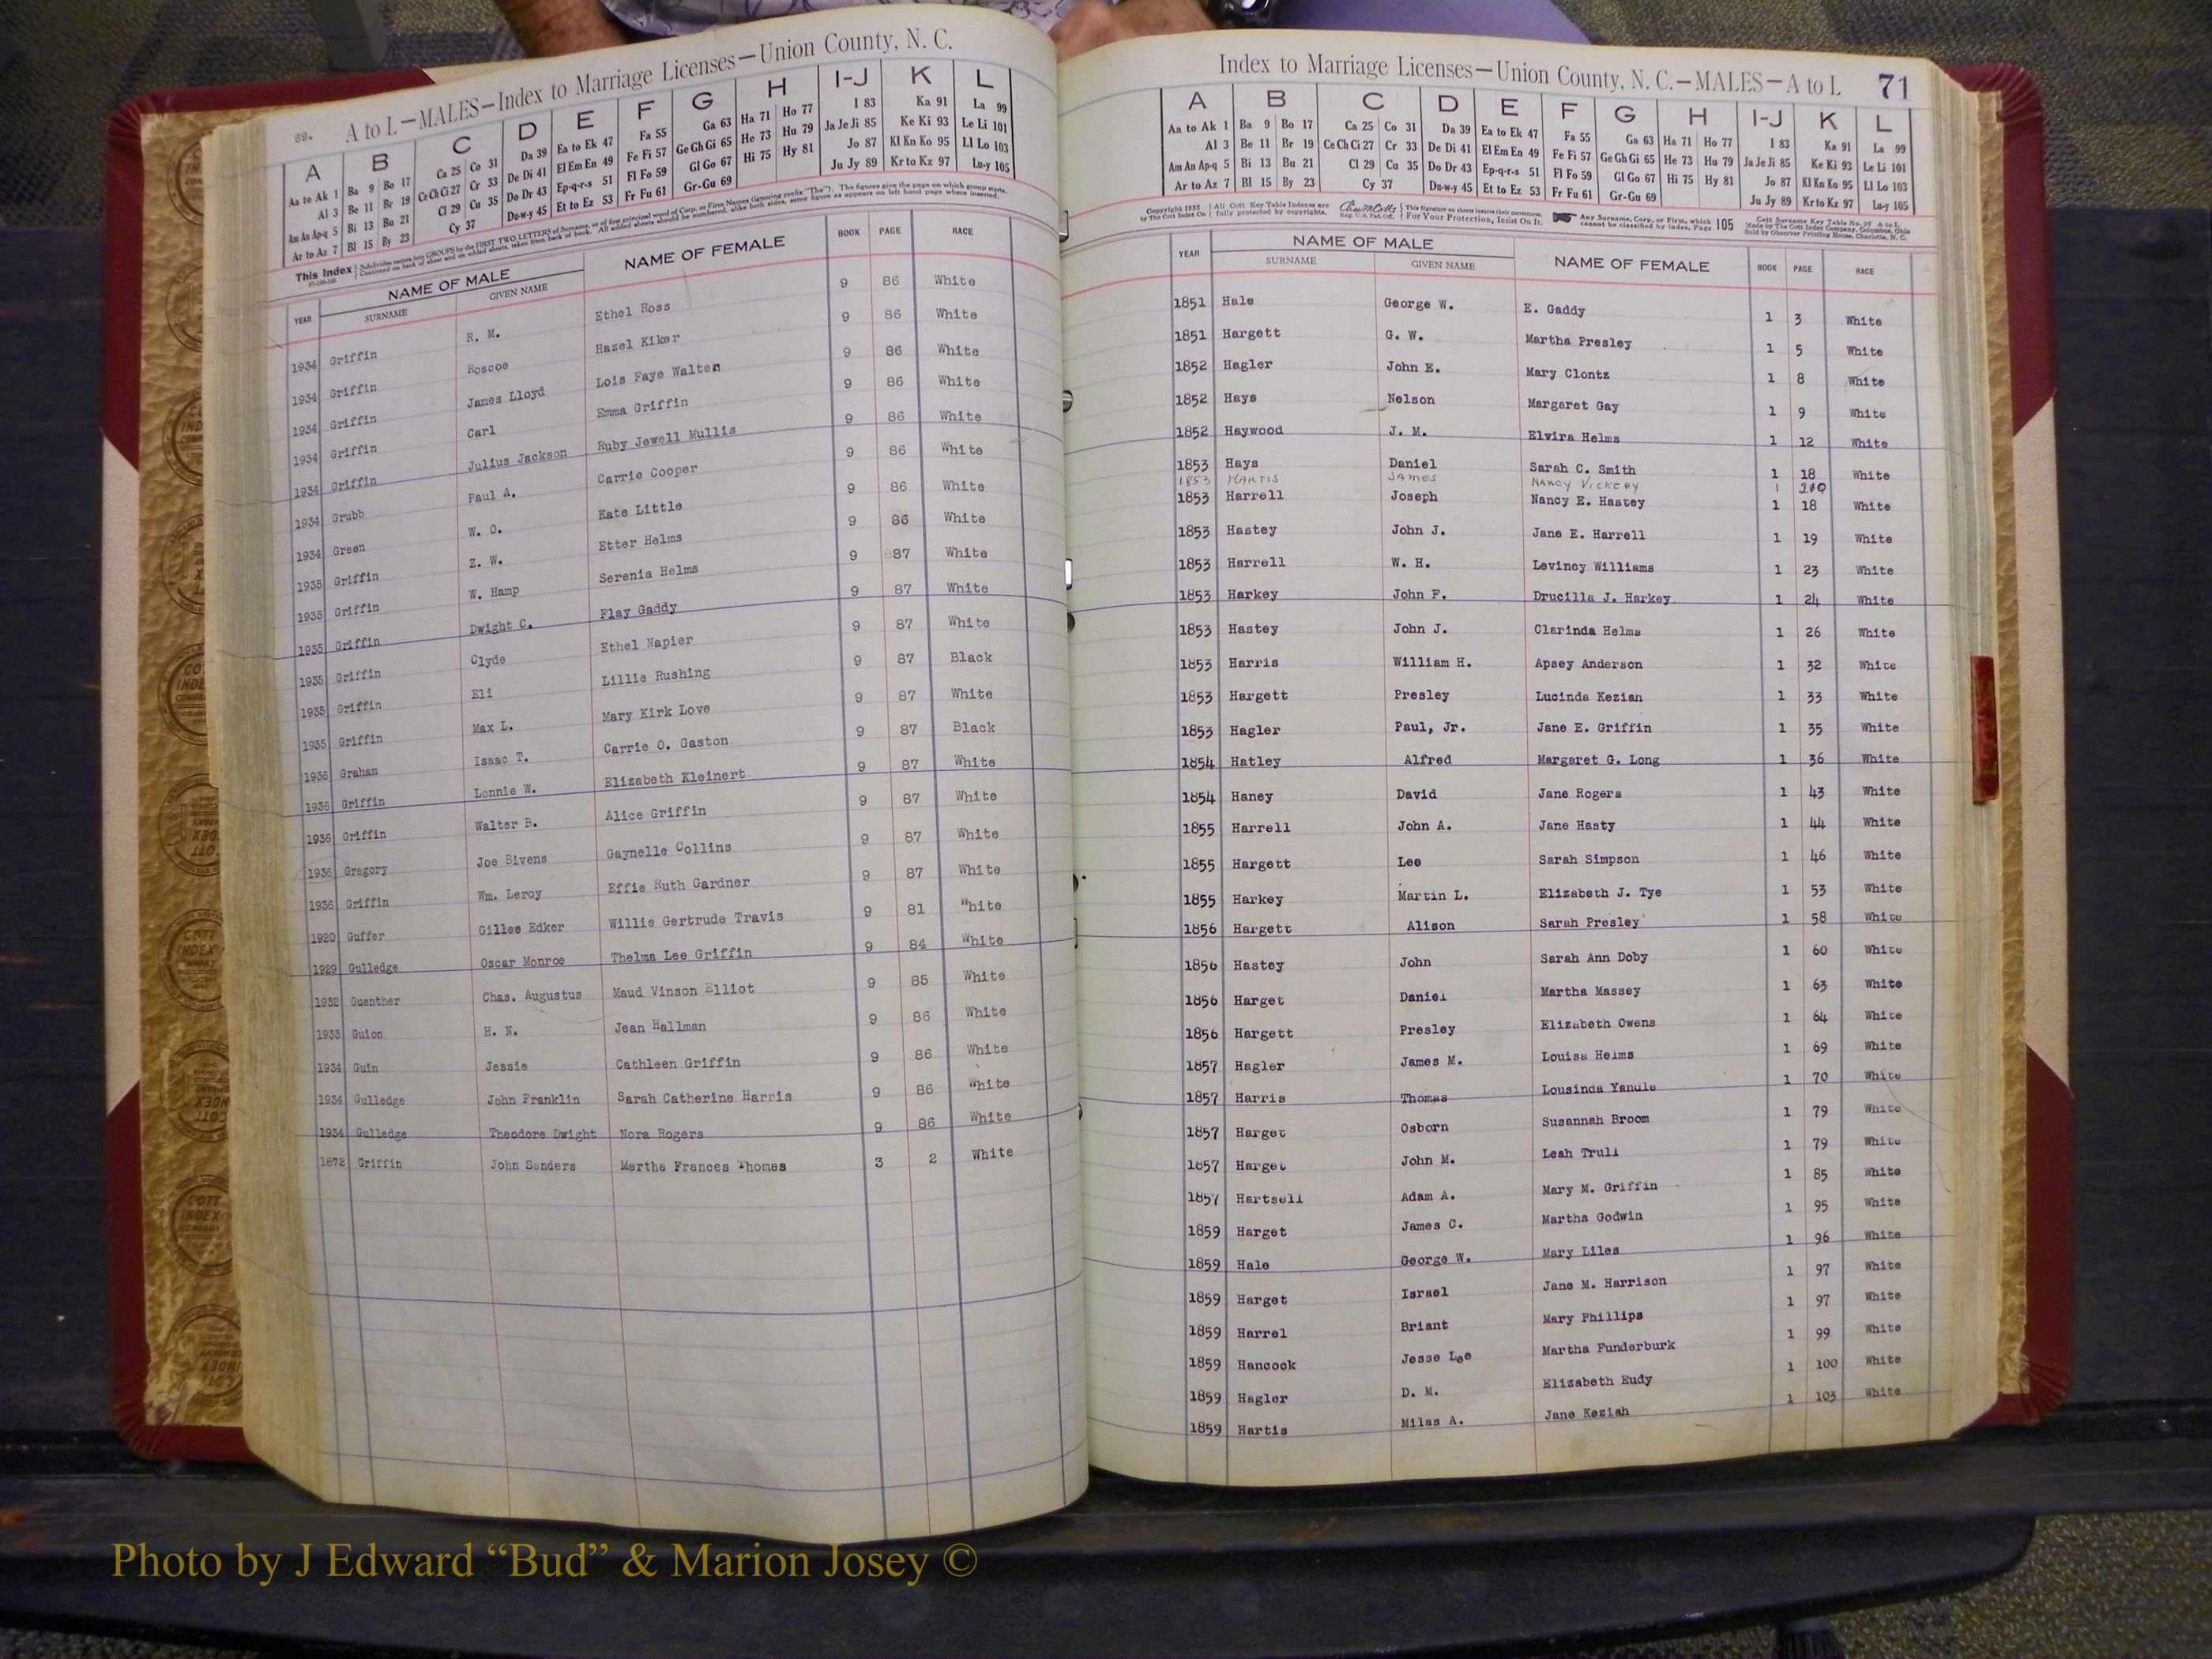 69. A to L—MALES—Index to Marriage Licenses—Union County, N. C.
A B C D E F G H I-J K L
Aa to Ak 1 Ba 9 Bo 17 Ca 25 Co 31 Da 39 Ea to Ek 47 Fa 55 Ga 63 Ha 71 Ho 77 I 83 Ka 91 La 99
Al 3 Be 11 Br 19 Ce Ch Ci 27 Cr 33 De Di 41 El Em En 49 Fe Fi 57 Ge Gh Gi 65 He 73 Hu 79 Ja Je Ji 85 Ke Ki 93 Le Li 101
Am An Ap-q 5 Bi 13 Bu 21 Cl 29 Cu 35 Do Dr 43 Ep-q-r-s 51 Fl Fo 59 Gl Go 67 Hi 75 Hy 81 Jo 87 Kl Kn Ko 95 Ll Lo 103
Ar to Az 7 Bl 15 By 23 Cy 37 Du-w-y 45 Et to Ez 53 Fr Fu 61 Gr-Gu 69 Ju Jy 89 Kr to Kz 97 Lu-y 105
This Index Subdivides names into GROUPS by the FIRST TWO LETTERS of Surname, or of first principal word of Corp. or Firm Names (ignoring prefix "The"). The figures give the page on which group starts.
Continued on back of sheet and on added sheets, taken from back of book. All added sheets should be numbered, alike both sides, same figure as appears on left hand page where inserted.
YEAR NAME OF MALE SURNAME GIVEN NAME NAME OF FEMALE BOOK PAGE RACE
1934 Griffin R. M. Ethel Ross 9 86 White
1934 Griffin Roscoe Hazel Kiker 9 86 White
1934 Griffin James Lloyd Lois Faye Walten 9 86 White
1934 Griffin Carl Emma Griffin 9 86 White
1934 Griffin Julius Jackson Ruby Jewell Mullis 9 86 White
1934 Grubb Paul A. Carrie Cooper 9 86 White
1934 Green W. O. Kate Little 9 86 White
1935 Griffin Z. W. Etter Helms 9 86 White
1935 Griffin W. Hamp Serenia Helms 9 87 White
1935 Griffin Dwight C. Flay Gaddy 9 87 White
1935 Griffin Clyde Ethel Napier 9 87 White
1935 Griffin Eli Lillie Rushing 9 87 Black
1935 Griffin Max L. Mary Kirk Love 9 87 White
1936 Graham Isaac T. Carrie O. Gaston 9 87 Black
1936 Griffin Lonnie W. Elizabeth Kleinert 9 87 White
1936 Griffin Walter B. Alice Griffin 9 87 White
1936 Gregory Joe Bivens Gaynelle Collins 9 87 White
1936 Griffin Wm. Leroy Effie Ruth Gardner 9 87 White
1920 Guffer Gilles Edker Willie Gertrude Travis 9 81 White
1929 Gulledge Oscar Monroe Thelma Lee Griffin 9 84 White
1932 Guenther Chas. Augustus Maud Vinson Elliot 9 85 White
1933 Guion H. N. Jean Hallman 9 86 White
1934 Guin Jessie Cathleen Griffin 9 86 White
1934 Gulledge John Franklin Sarah Catherine Harris 9 86 White
1934 Gulledge Theodore Dwight Nora Rogers 9 86 White
1872 Griffin John Sanders Martha Frances Thomas 3 2 White
Index to Marriage Licenses—Union County, N. C.—MALES—A to L 71
A B C D E F G H I-J K L
Aa to Ak 1 Ba 9 Bo 17 Ca 25 Co 31 Da 39 Ea to Ek 47 Fa 55 Ga 63 Ha 71 Ho 77 I 83 Ka 91 La 99
Al 3 Be 11 Br 19 Ce Ch Ci 27 Cr 33 De Di 41 El Em En 49 Fe Fi 57 Ge Gh Gi 65 He 73 Hu 79 Ja Je Ji 85 Ke Ki 93 Le Li 101
Am An Ap-q 5 Bi 13 Bu 21 Cl 29 Cu 35 Do Dr 43 Ep-q-r-s 51 Fl Fo 59 Gl Go 67 Hi 75 Hy 81 Jo 87 Kl Kn Ko 95 Ll Lo 103
Ar to Az 7 Bl 15 By 23 Cy 37 Du-w-y 45 Et to Ez 53 Fr Fu 61 Gr-Gu 69 Ju Jy 89 Kr to Kz 97 Lu-y 105
Copyright 1922 by The Cott Index Co. All Cott Key Table Indexes are fully protected by copyrights. Reg. U.S. Pat. Off. This Signature on sheets insures their correctness. For Your Protection, Insist On It. Any Surname, Corp. or Firm, which cannot be classified by index, Page 105 Cott Surname Key Table No. 97 A to L Made by The Cott Index Company, Columbus, Ohio Sold by Observer Printing House, Charlotte, N. C.
YEAR NAME OF MALE SURNAME GIVEN NAME NAME OF FEMALE BOOK PAGE RACE
1851 Hale George W. E. Gaddy 1 3 White
1851 Hargett G. W. Martha Presley 1 5 White
1852 Hagler John E. Mary Clontz 1 8 White
1852 Hays Nelson Margaret Gay 1 9 White
1852 Haywood J. M. Elvira Helms 1 12 White
1853 Hays Daniel Sarah C. Smith 1 18 White
1853 HARTIS JAMES NANCY VICKERY 1
1853 Harrell Joseph Nancy E. Hastey 1 18 White
1853 Hastey John J. Jane E. Harrell 1 19 White
1853 Harrell W. H. Levincy Williams 1 23 White
1853 Harkey John F. Drucilla J. Harkey 1 24 White
1853 Hastey John J. Clarinda Helms 1 26 White
1853 Harris William H. Apsey Anderson 1 32 White
1853 Hargett Presley Lucinda Kezian 1 33 White
1853 Hagler Paul, Jr. Jane E. Griffin 1 35 White
1854 Hatley Alfred Margaret G. Long 1 36 White
1854 Haney David Jane Rogers 1 43 White
1855 Harrell John A. Jane Hasty 1 44 White
1855 Hargett Lee Sarah Simpson 1 46 White
1855 Harkey Martin L. Elizabeth J. Tye 1 53 White
1856 Hargett Alison Sarah Presley 1 58 White
1856 Hastey John Sarah Ann Doby 1 60 White
1856 Harget Daniel Martha Massey 1 63 White
1856 Hargett Presley Elizabeth Owens 1 64 White
1857 Hagler James M. Louisa Helms 1 69 White
1857 Harris Thomas Lousinda Yandle 1 70 White
1857 Harget Osborn Susannah Broom 1 79 White
1857 Harget John M. Leah Trull 1 79 White
1857 Hartsell Adam A. Mary M. Griffin 1 85 White
1859 Harget James C. Martha Godwin 1 95 White
1859 Hale George W. Mary Liles 1 96 White
1859 Harget Israel Jane M. Harrison 1 97 White
1859 Harrel Briant Mary Phillips 1 97 White
1859 Hancock Jesse Lee Martha Funderburk 1 99 White
1859 Hagler D. M. Elizabeth Eudy 1 100 White
1859 Hartis Milas A. Jane Keziah 1 103 White
Photo by J Edward “Bud” & Marion Josey ©